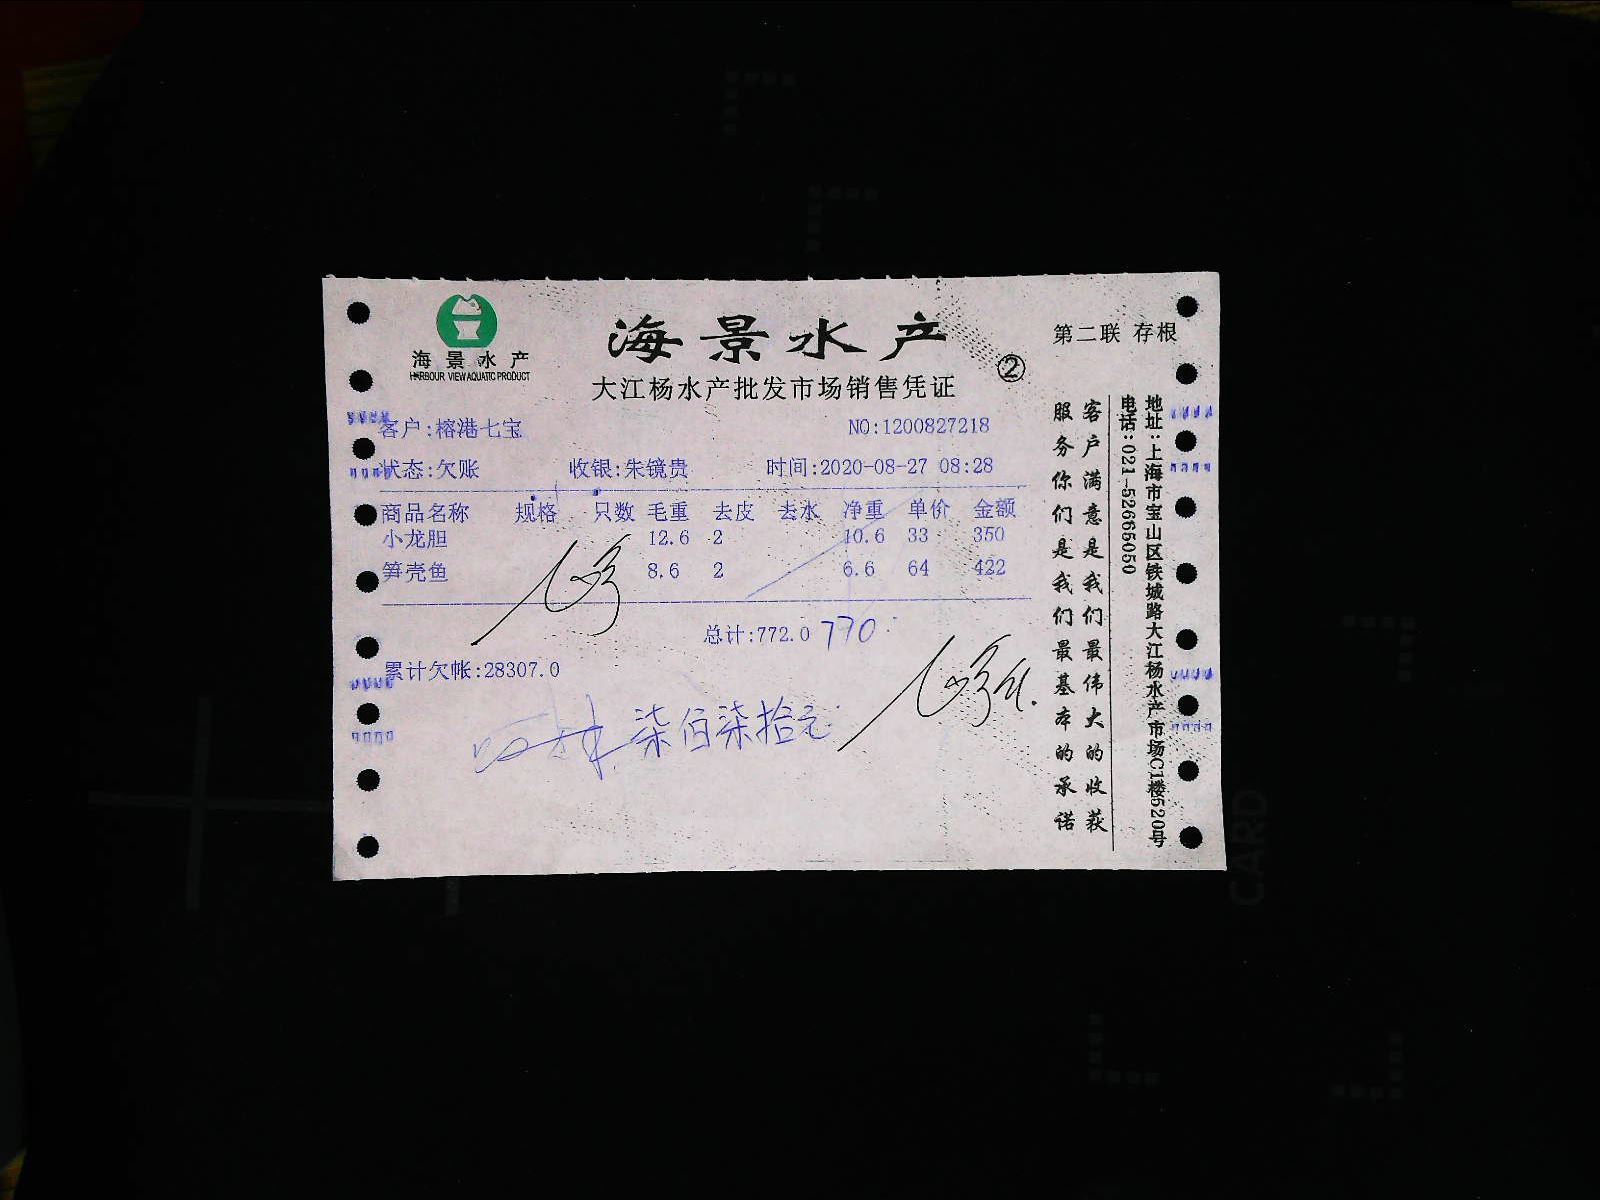 海景水产
HARBOUR VIEW AQUATIC PRODUCT
海景水产
大江杨水产批发市场销售凭证
②
第二联 存根
客户:榕港七宝 NO:1200827218
状态:欠账 收银:朱镜贵 时间:2020-08-27 08:28
商品名称 规格 只数 毛重 去皮 去水 净重 单价 金额
小龙胆 12.6 2 10.6 33 350
笋壳鱼 8.6 2 6.6 64 422
总计:772.0 770
累计欠帐:28307.0
柒佰柒拾元
客户满意是我们最伟大的收获
服务你们是我们最基本的承诺
地址:上海市宝山区铁城路大江杨水产市场C1楼520号
电话:021-52665050
CARD